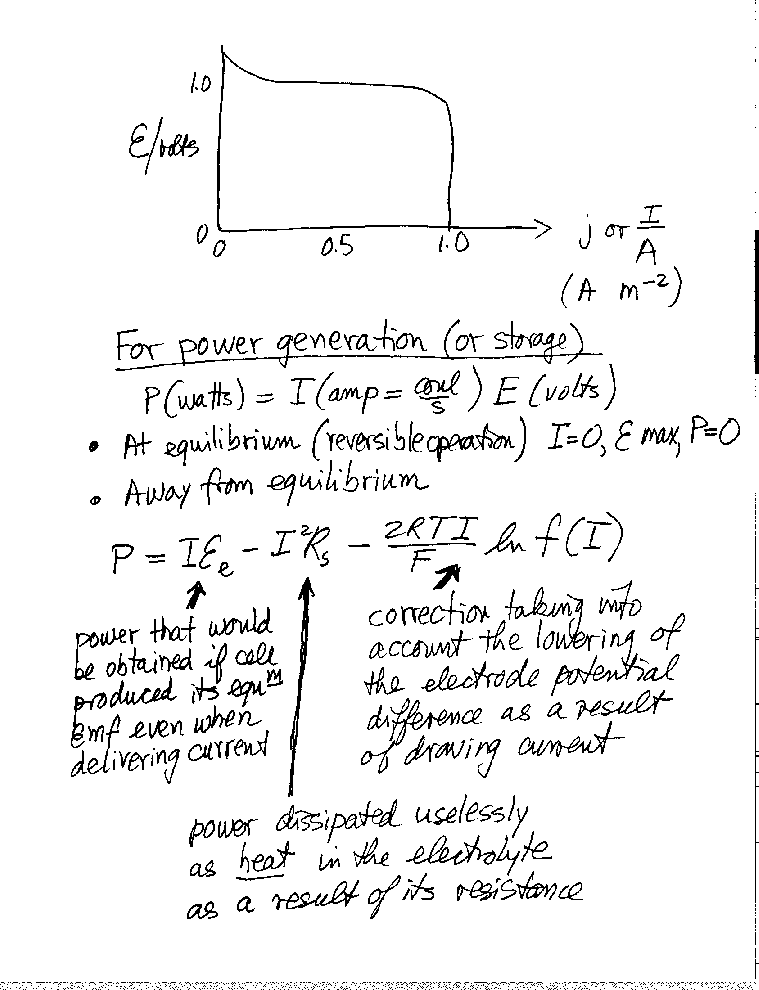 1.0
ℰ/volts
0
0 0.5 1.0
j or I/A
(A m⁻²)
For power generation (or storage)
P(watts) = I(amp = coul/s) E (volts)
• At equilibrium (reversible operation) I=0, ℰ max, P=0
• Away from equilibrium
P = Iℰₑ − I²Rₛ − 2RTI/F ln f(I)
power that would
be obtained if cell
produced its equᵐ
emf even when
delivering current
correction taking into
account the lowering of
the electrode potential
difference as a result
of drawing current
power dissipated uselessly
as heat in the electrolyte
as a result of its resistance